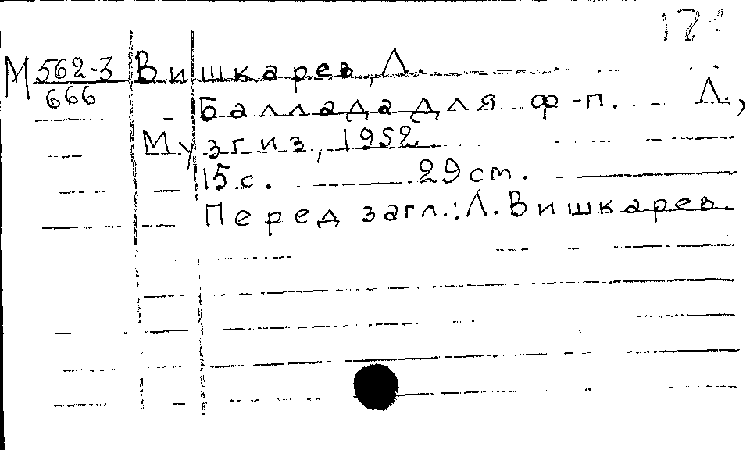 М 562-3 Вишкарев, Л.
666
Баллада для ф-п. Л.,
Музгиз, 1952.
15 с. 29 cm.
Перед загл.: Л. Вишкарев.